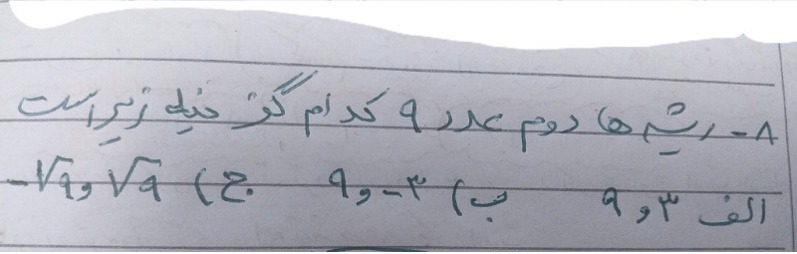 ۸- ریشه ها دوم عدد ۹ کدام گزینه زیر است
الف ۳ و ۹ ب) ۳- و ۹ ج) √۹ و √۹-